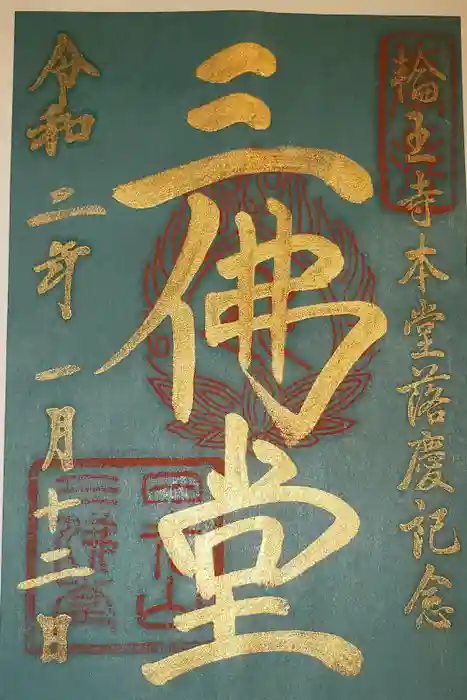 輪王寺本堂落慶記念
三佛堂
令和二年一月十二日